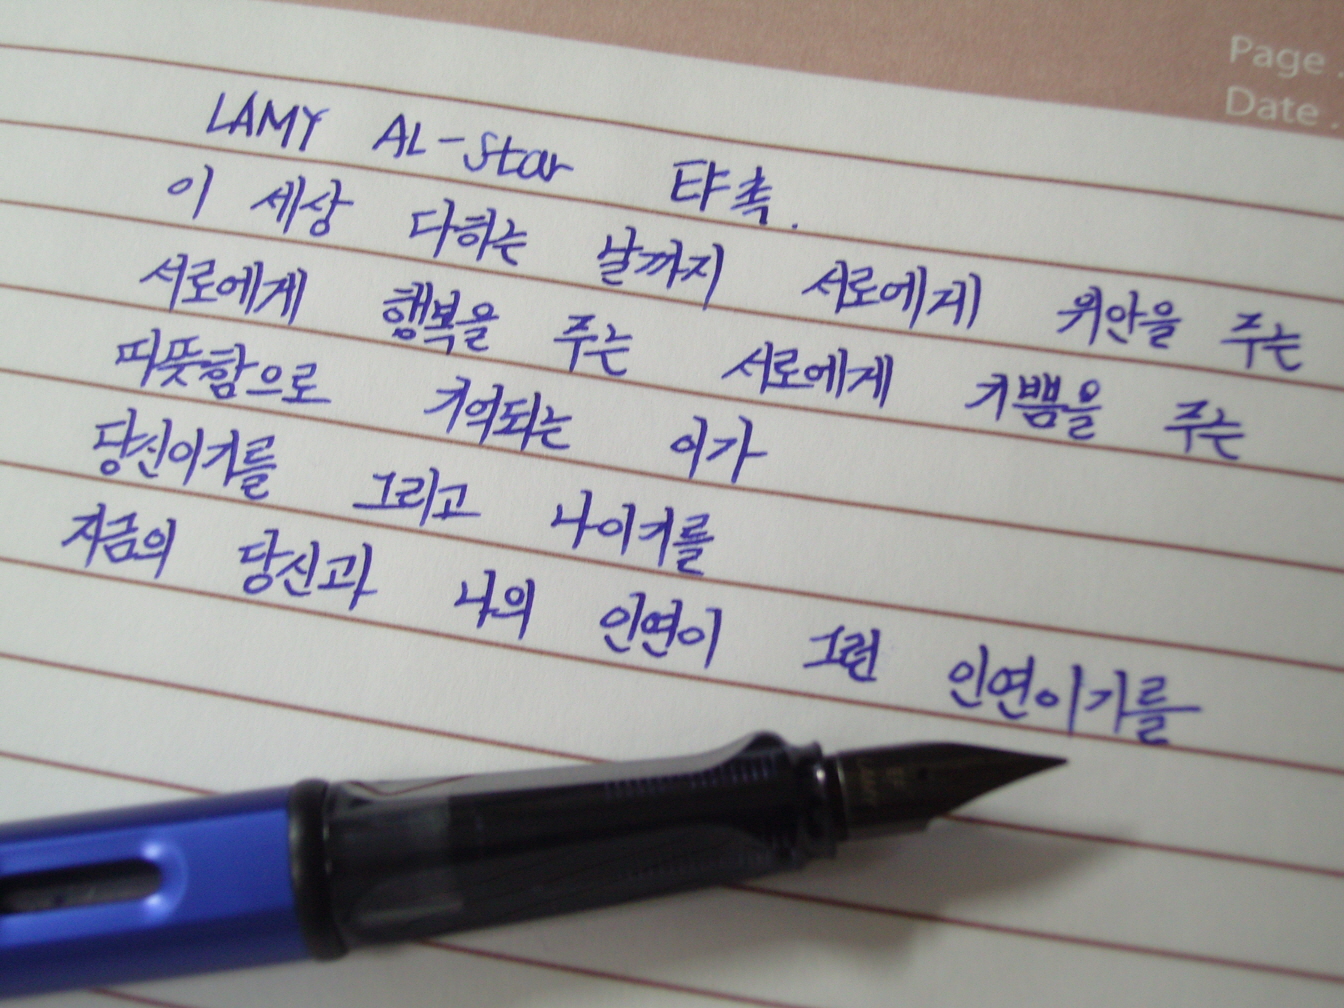 Page
Date
LAMY AL-Star EF촉.
이 세상 다하는 날까지 서로에게 위안을 주는
서로에게 행복을 주는 서로에게 기쁨을 주는
따뜻함으로 기억되는 이가
당신이기를 그리고 나이기를
지금의 당신과 나의 인연이 그런 인연이기를
LAMY
EF